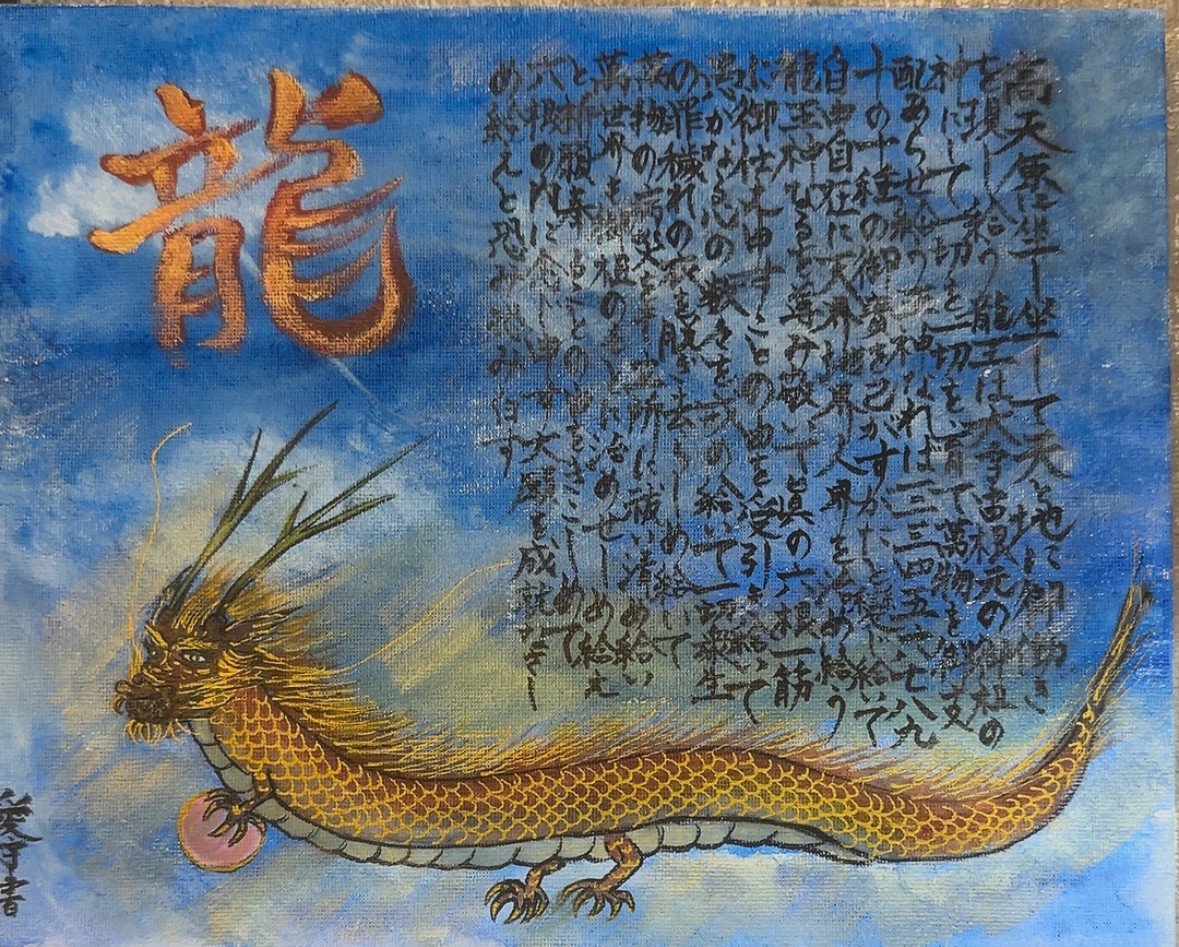 龍
高天原に坐し坐して天と地に御働き
を現し給う龍王は大宇宙根元の御祖の
神にして一切を一切を育て萬物を御支
配あらせ給う王神なれば一二三四五六七八九
十の十種の御寶を己がすがたと變じ給いて
自由自在に天界地界人界を治め給う
龍王神なるを尊み敬いて眞の六根一筋
に御仕え申すことの由を受引き給いて
愚かなる心の数々を戒め給いて一切衆生
の罪穢れの衣を脱ぎ去らしめ給いて
萬物の病災をも立所に祓い清め給い
萬世界も御祖のもとに治めせしめ給え
と祈願奉ることの由をきこしめして
六根の内に念じ申す大願を成就なさし
め給えと恐み恐み白す